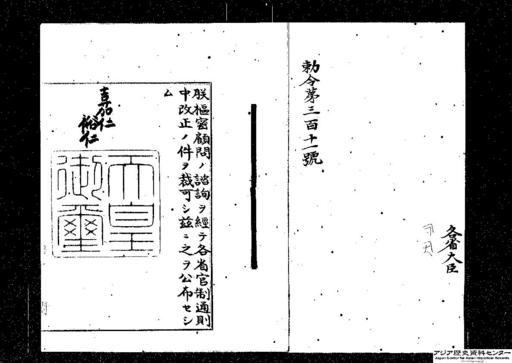 勅令第三百十一號
各省大臣
朕樞密顧問ノ諮詢ヲ經テ各省官制通則
中改正ノ件ヲ裁可シ茲ニ之ヲ公布セシ
ム
嘉仁
裕仁
天皇
御璽
アジア歴史資料センター
Japan Center for Asian Historical Records